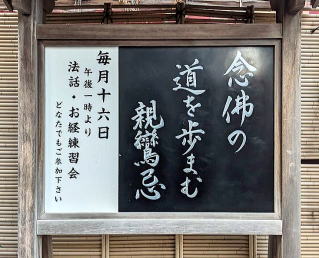 念佛の
道を歩まむ
親鸞忌
毎月十六日
午後一時より
法話・お経練習会
どなたでもご参加下さい